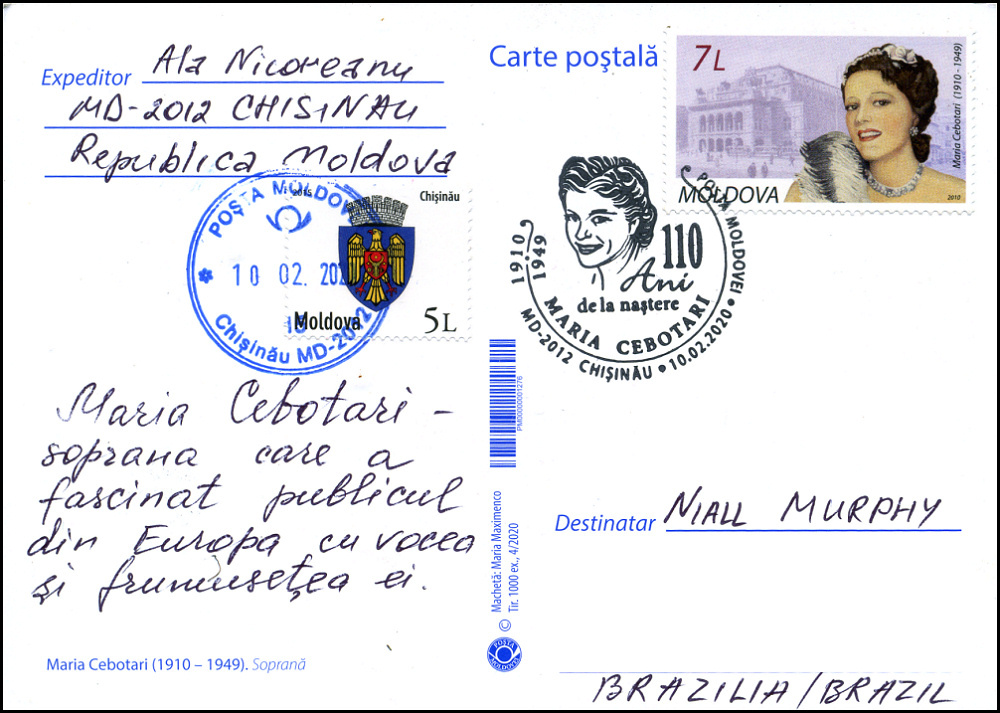 Expeditor Ala Nicoreanu
MD-2012 CHISINAU
Republica Moldova
Carte poştală
7L
Maria Cebotari (1910 - 1949)
MOLDOVA
2010
Chişinău
2015
Moldova
5L
POŞTA MOLDOVEI
10 02. 202
Chişinău MD-2012
1910
1949
110
Ani
de la naştere
MARIA CEBOTARI
POŞTA MOLDOVEI • MD-2012 CHIŞINĂU • 10.02.2020 •
Maria Cebotari -
soprana care a
fascinat publicul
din Europa cu vocea
şi frumuseţea ei.
Maria Cebotari (1910 – 1949). Soprană
PM00000001276
© Machetă: Maria Maximenco
Tir. 1000 ex., 4/2020
POŞTA MOLDOVEI
Destinatar NIALL MURPHY
BRAZILIA/BRAZIL